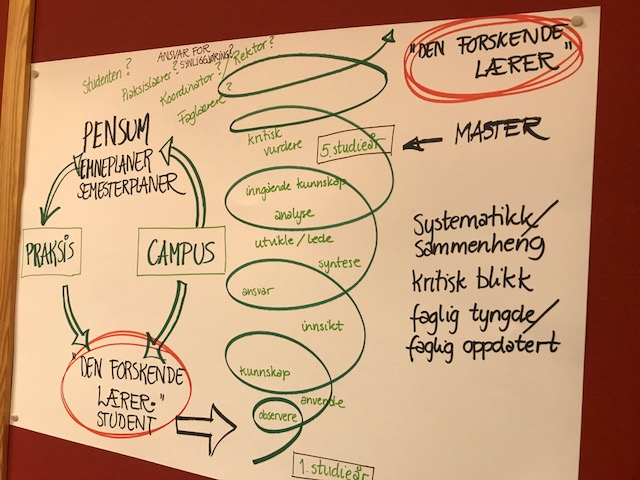 Studenten?
ANSVAR FOR
SYNLIGGJØRING?
Praksislærer?
Koordinator?/Rektor?
Faglærer?
PENSUM
EMNEPLANER
SEMESTERPLANER
PRAKSIS
CAMPUS
"DEN FORSKENDE
LÆRER-"
STUDENT
kritisk
vurdere
5. studieår
MASTER
inngående kunnskap
analyse
utvikle / lede
syntese
ansvar
innsikt
kunnskap
anvende
observere
1. studieår
"DEN FORSKENDE
LÆRER"
Systematikk/
Sammenheng
kritisk blikk
faglig tyngde/
faglig oppdatert